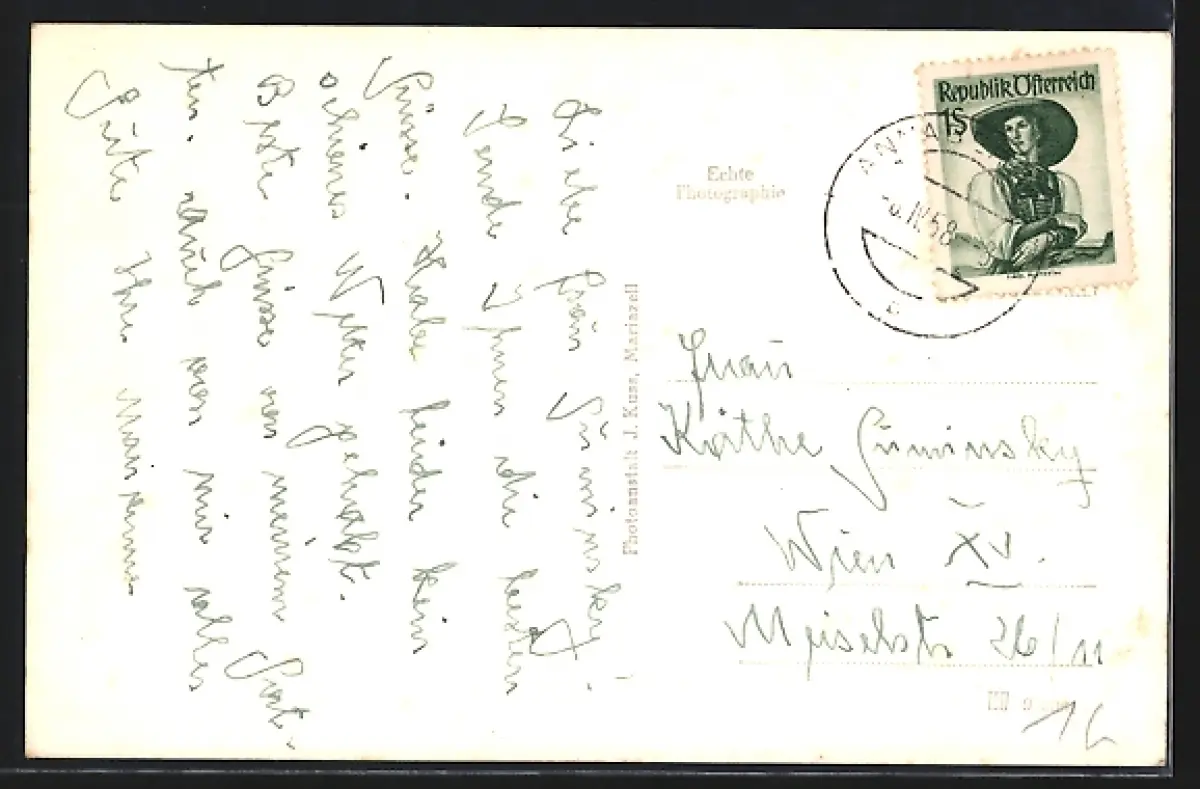 Liebe Frau Guminsky!
Sende Ihnen die besten
Grüsse. Habe leider kein
schönes Wetter gehabt.
Beste Grüsse von meinem Gat-
ten. Auch von mir alles
Gute Ihre Marianne
Echte
Photographie
Photoanstalt J. Kuss, Mariazell
Republik Österreich
1S
ANNA
IV.58
Frau
Käthe Guminsky
Wien XV.
Meiselstr 26/11